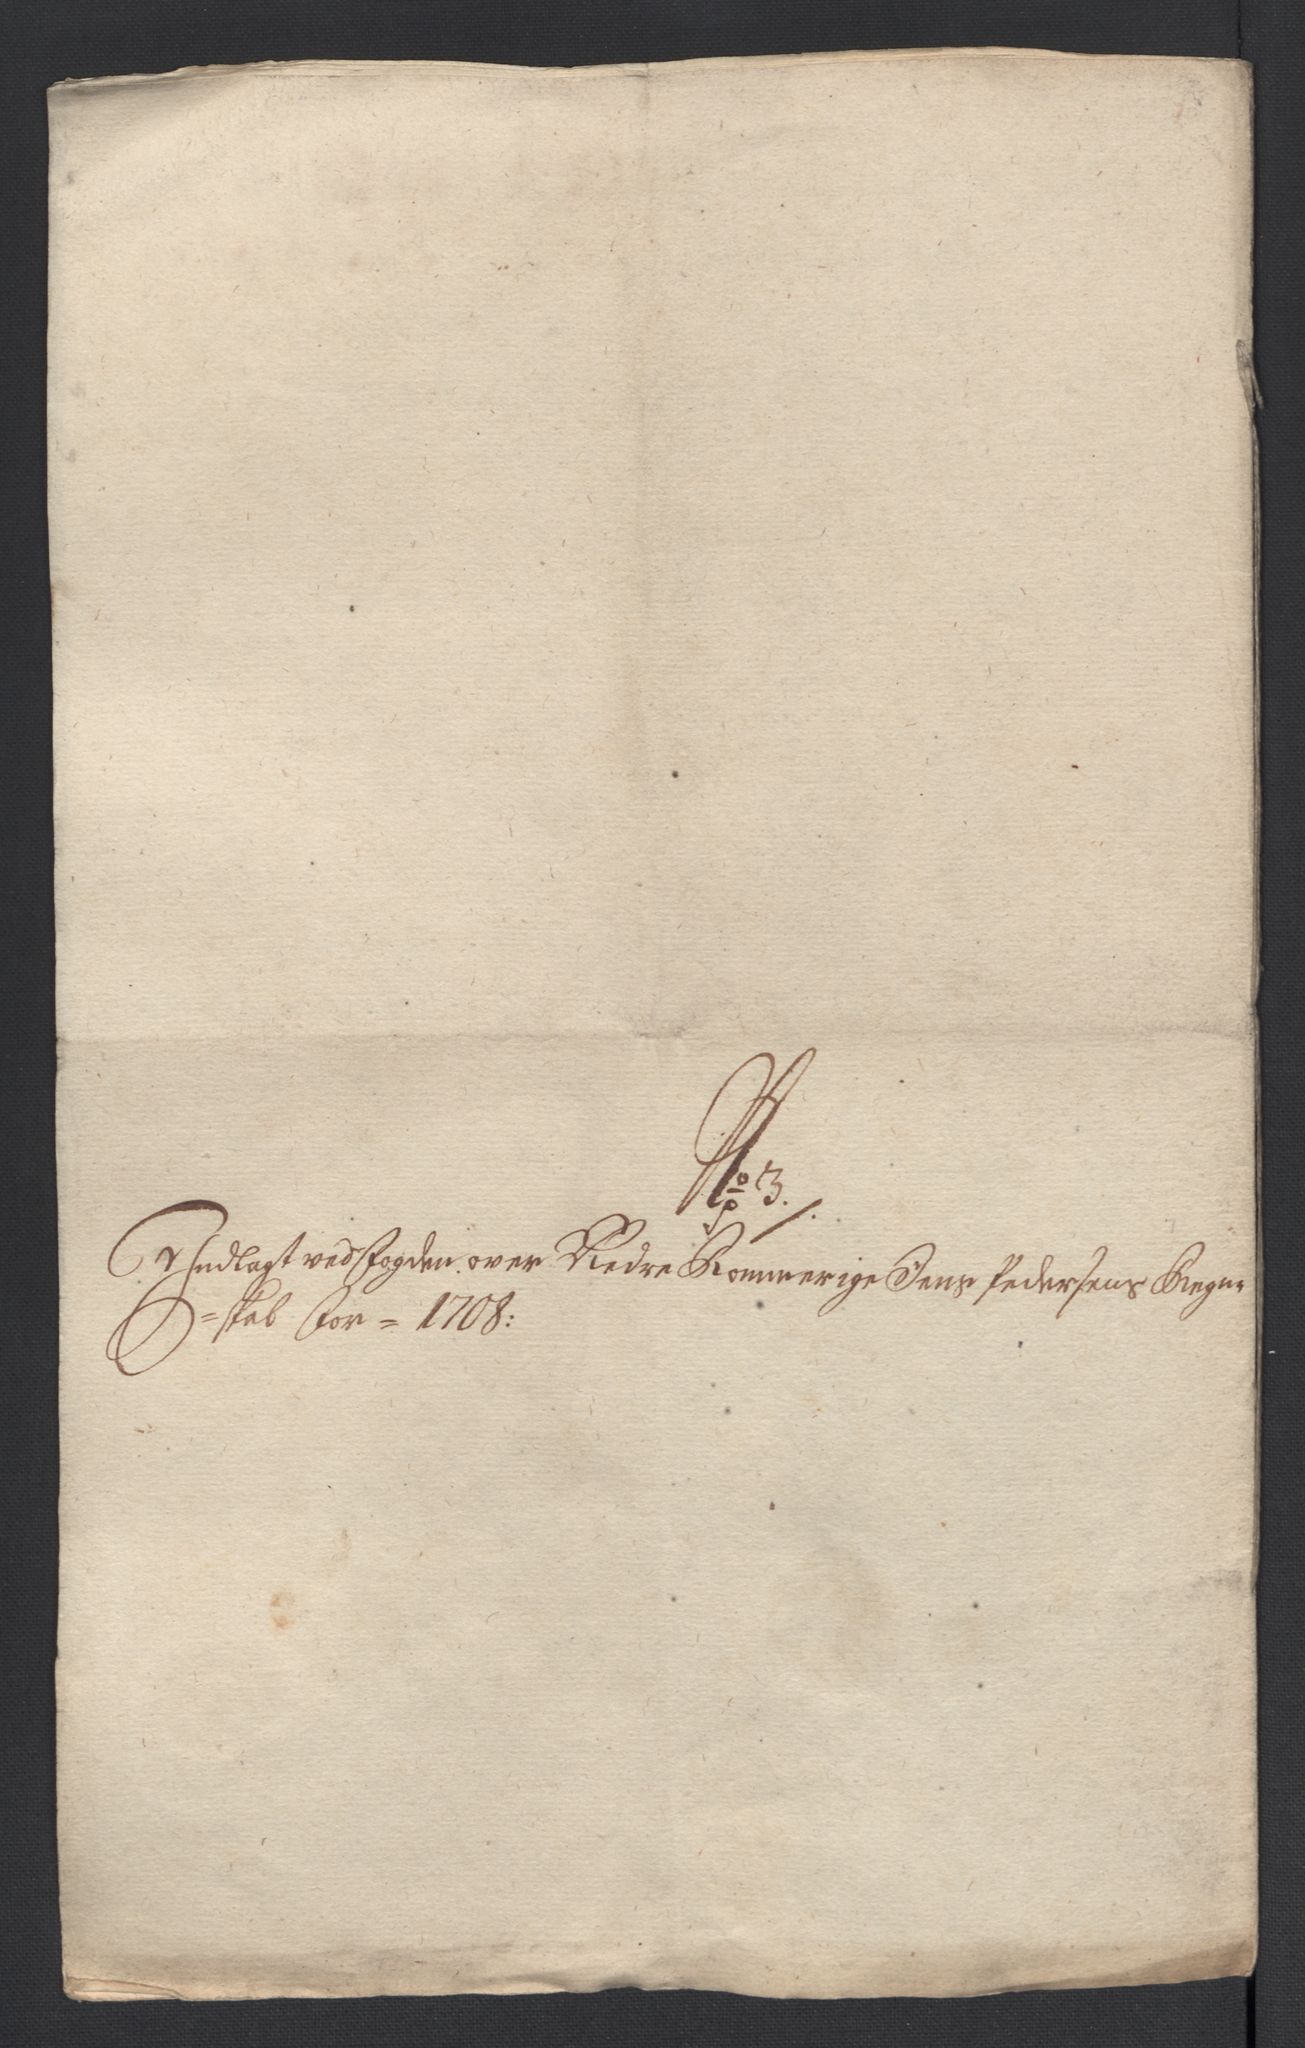 No 3.
Indlagt ved Fogden over Nedre Rommerige Jens Pedersens Regn=
=skab for = 1708: